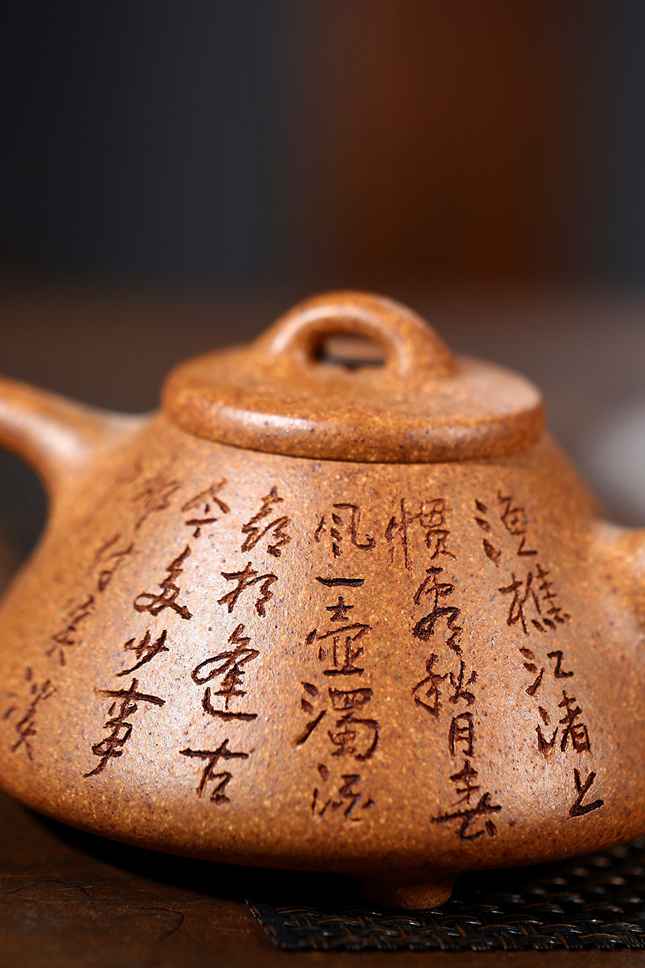 渔樵江渚上
惯看秋月春
风一壶濁酒
喜相逢古
今多少事
都付笑谈